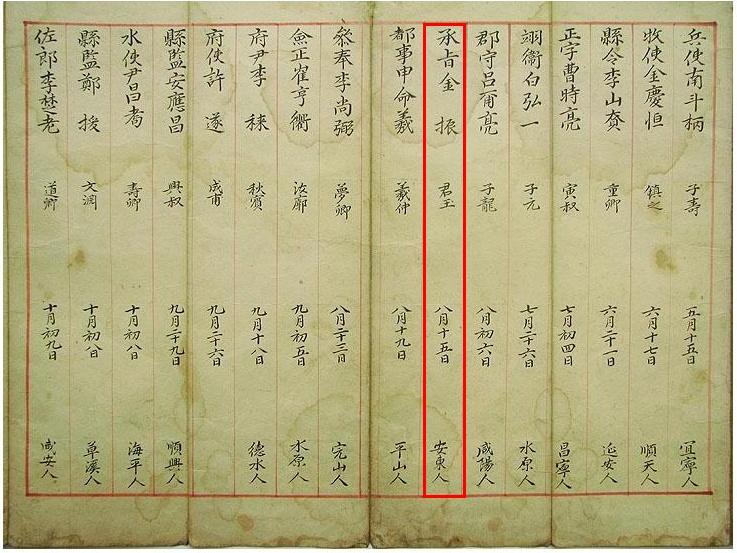 兵使南斗柄 子壽 五月十五日 宜寧人
牧使金慶恒 鎭之 六月十七日 順天人
縣令李山賚 重卿 六月二十一日 延安人
正字曹時亮 寅叔 七月初四日 昌寧人
翊衛白弘一 子元 七月二十六日 水原人
郡守呂爾亮 子龍 八月初六日 咸陽人
承旨金振 君玉 八月十五日 安東人
都事申命羲 羲仲 八月十九日 平山人
參奉李尚弼 夢卿 八月二十三日 完山人
僉正崔亨衢 九月初五日 水原人
府尹李秣 秋賓 九月十八日 德水人
府使許遂 成甫 九月二十六日
縣監安應昌 興叔 九月二十九日 順興人
水使尹昌耈 壽卿 十月初八日 海平人
縣監鄭援 文淵 十月初八日 草溪人
佐郎李楚老 道卿 十月初九日 咸安人